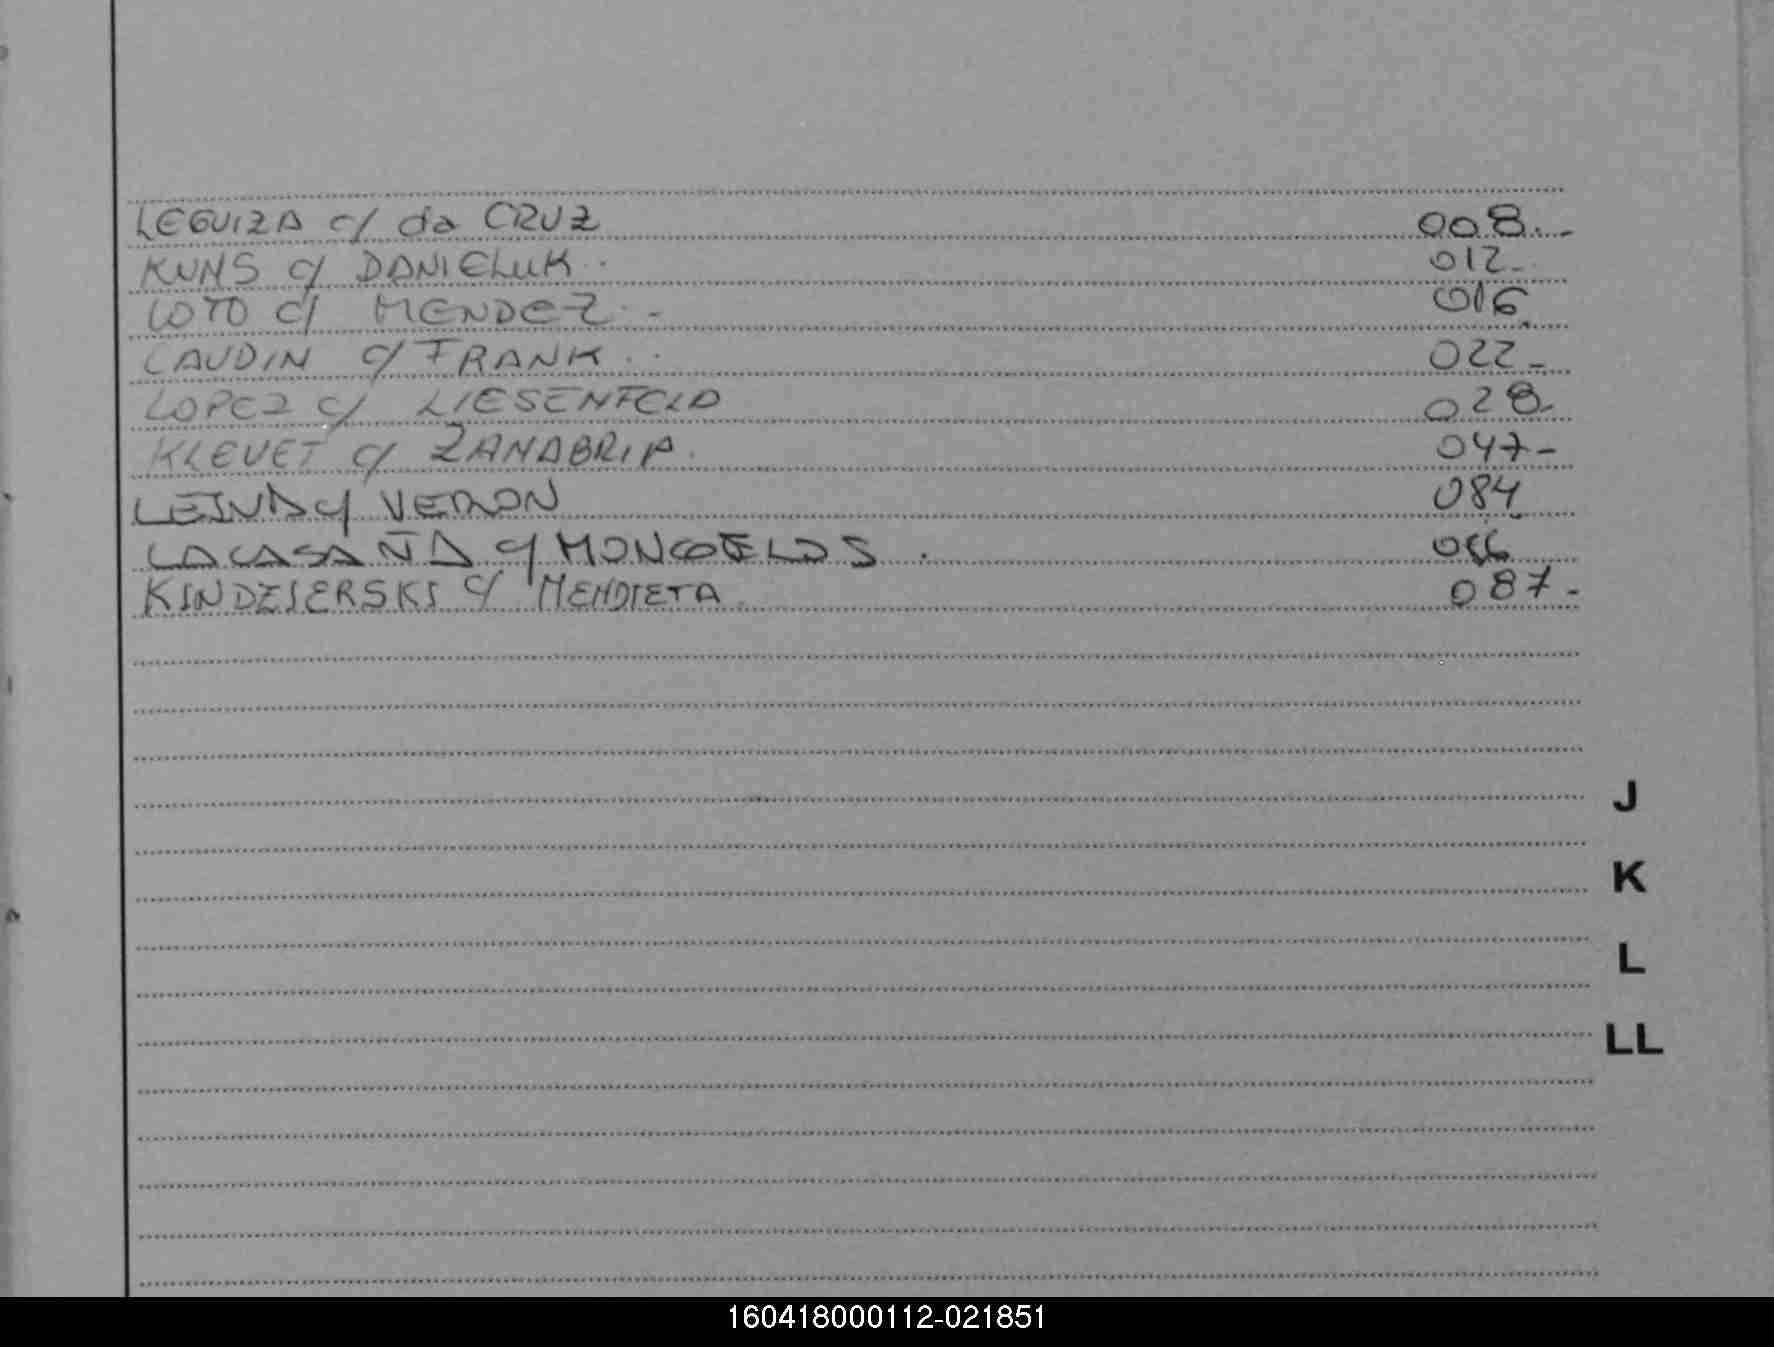 LEGUIZA c/ da CRUZ 008.-
KUNS c/ DANIELUK. 012-
LOTO c/ MENDEZ.- 016.
LAUDIN c/ FRANK.. 022-
LOPEZ c/ LIESENFELD 028-
KLEVET c/ ZANABRIA. 047-
LEIVA c/ VERON 084
LACASAÑA c/ MONGELOS.
KINDZIERSKI c/ MENDIETA. 087-
J
K
L
LL
160418000112-021851